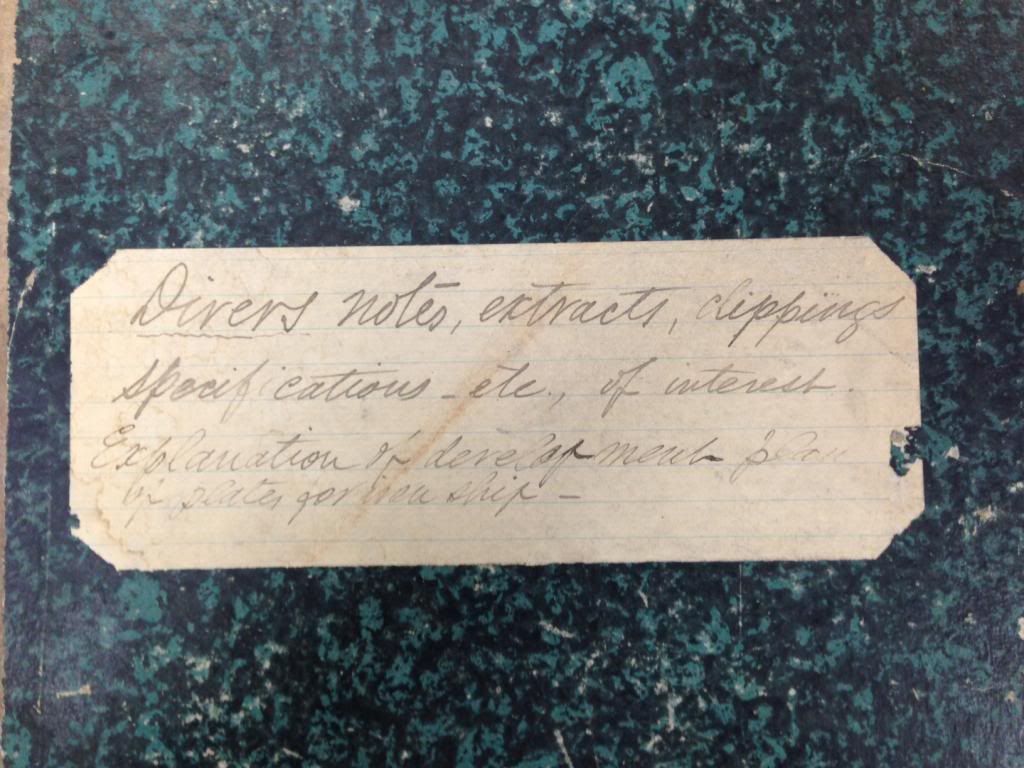 Divers notes, extracts, clippings
specifications - etc., of interest.
Explanation of development plan
of plates for iron ship -